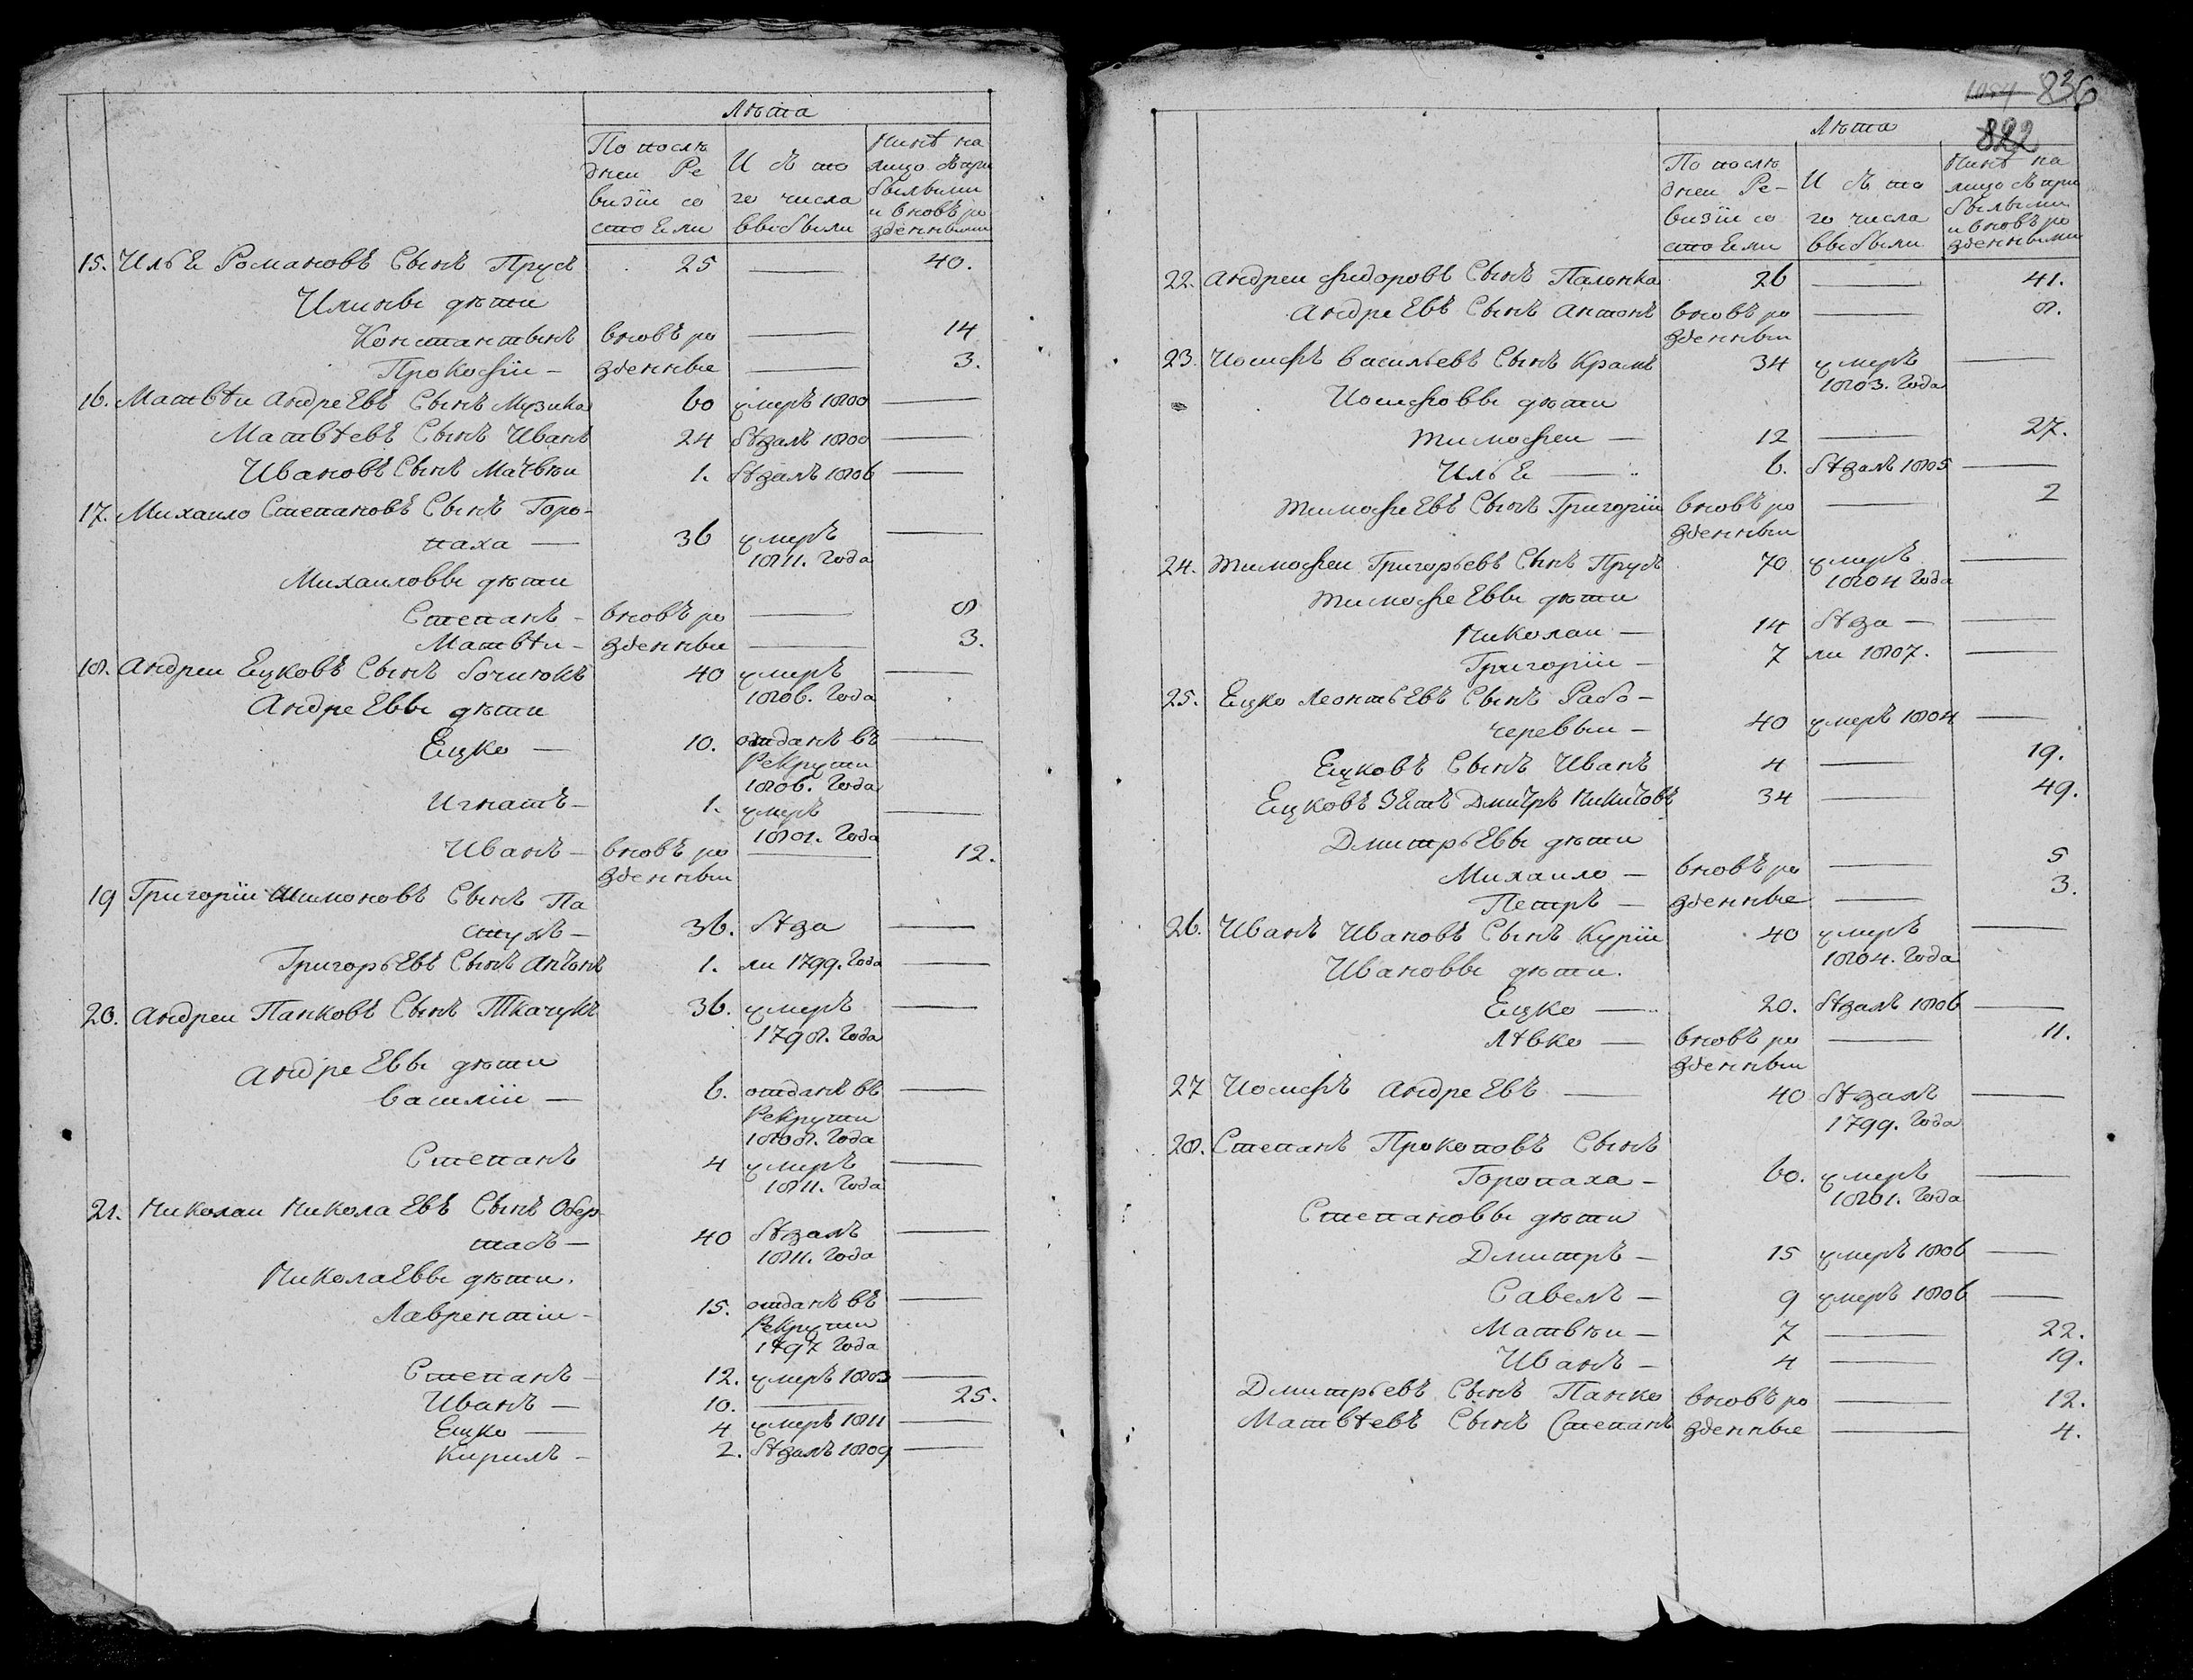 Лѣта
По послѣ
дней Ре
визіи со
стоЕли
И съ то
го числа
выбыли
Нинѣ на
лицо съ при
былыми
и вновъ ро
зденными
15. Илье Романовъ Сынъ Прусъ 25 — 40.
Илины дѣти
Константынъ вновъ ро — 14
Прокофіи - зденные — 3.
16. Матвѣи АндреЕвъ Сынъ Музика 60 умеръ 1800 —
Матвѣевъ Сынъ Иванъ 24 бѣзалъ 1800 —
Ивановъ Сынъ Матвѣи 1. бѣзалъ 1806 —
17. Михаило Степановъ Сынъ Горо-
паха — 36 умеръ —
1811. Года
Михаиловы дѣти
Степанъ - вновъ ро — 8
Матвѣи - зденные — 3.
18. Андреи Ецковъ Сынъ бочюкъ 40 умеръ —
1806. Года
АндреЕвы дѣти
Ецко — 10. отданъ въ —
Рекрути
1806. Года
Игнатъ - 1. умеръ —
1801. Года
Иванъ - вновъ ро — 12.
зденныи
19 Григоріи Шимоновъ Сынъ Па
стухъ - 36. бѣза —
ГригорьЕвъ Сынъ Антонъ 1. ли 1799. Года —
20. Андреи Панковъ Сынъ Ткачукъ 36. умеръ —
1798. Года
АндреЕвы дѣти
Василіи — 6. отданъ въ —
Рекрути
1808. Года
Степанъ 4 умеръ —
1811. Года
21. Николаи НиколаЕвъ Сынъ Обер-
тасъ - 40 бѣзалъ —
1811. Года
НиколаЕвы дѣти.
Лаврентіи - 15. отданъ въ —
Рекрути
1797 Года
Степанъ - 12. умеръ 1803 —
Иванъ — 10. — 25.
Ецко — 4 умеръ 1811 —
Кирилъ - 2. бѣзалъ 1809 —
836
822
Лѣта
По послѣ
дней Ре-
визіи со
стоЕли
И съ то
го числа
выбыли
Нинѣ на
лицо съ при
былыми
и вновъ ро
зденными
22. Андреи Фидоровъ Сынъ Паленка 26 — 41.
АндреЕвъ Сынъ Антонъ вновъ ро — 8.
зденныи
23. Иосифъ Васильевъ Сынъ Крамъ 34 умеръ —
1803. Года
Иосифовы дѣти
Тимофеи — 12 — 27.
Илье — 6. бѣзалъ 1805 —
ТимофеЕвъ Сынъ Григоріи вновъ ро — 2
зденныи
24. Тимофеи Григорьевъ Снъ Прусъ 70 умеръ —
1804 Года
ТимофеЕвы дѣти
Николаи — 14 бѣза — —
Григоріи - 7 ли 1807. —
25. Ецко ЛеонтьЕвъ Сынъ Рабо-
черевыи - 40 умеръ 1804 —
Ецковъ Сынъ Иванъ 4 — 19.
Ецковъ ЗЕтъ Дмитръ Никитовъ 34 — 49.
ДмитрьЕвы дѣти
Михаило — вновъ ро — 5
Петръ — зденные — 3.
26. Иванъ Ивановъ Сынъ Куріи 40 умеръ —
1804. Года
Ивановы дѣти.
Ецко — 20. бѣзалъ 1806 —
Лѣвко — вновъ ро — 11.
зденныи
27 Иосифъ АндреЕвъ — 40 бѣзалъ —
1799. Года
28. Степанъ Прокоповъ Сынъ
Горопаха - 60. умеръ —
1801. Года
Степановы дѣти
Дмитръ - 15 умеръ 1806 —
Савелъ - 9 умеръ 1806 —
Матвѣи - 7 — 22.
Иванъ - 4 — 19.
Дмитрьевъ Сынъ Панко вновъ ро — 12.
Матвѣевъ Сынъ Степанъ зденные — 4.